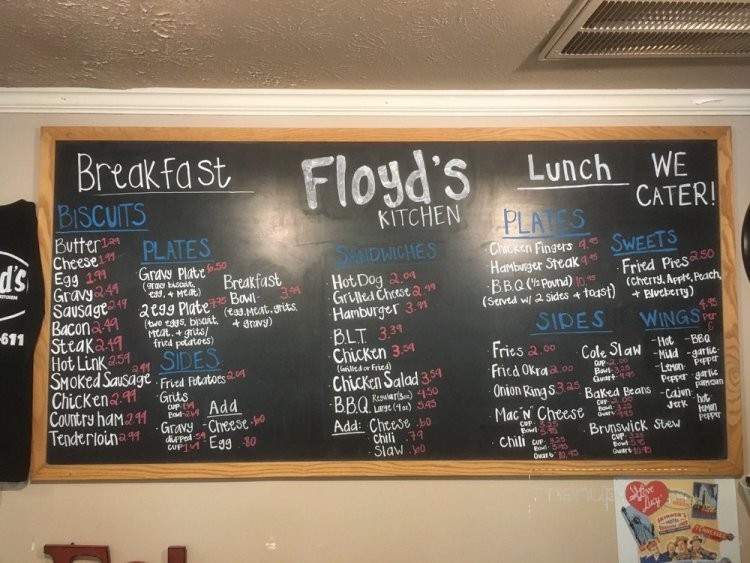 Breakfast
BISCUITS
Butter 1.29
Cheese 1.99
Egg 1.99
Gravy 2.49
Sausage 2.49
Bacon 2.49
Steak 2.49
Hot Link 2.59
Smoked Sausage
Chicken 2.99
Country ham 2.99
Tenderloin 2.99
PLATES
Gravy Plate 6.50
(gravy biscuit,
egg, + meat)
2 egg Plate
(two eggs, biscuit,
meat, + grits/
fried potatoes)
Breakfast
Bowl
(egg, meat, grits,
+ gravy)
SIDES
Fried Potatoes 2.09
Grits
Gravy
dipped .59
Add
Cheese .60
Egg .80
Floyd's
KITCHEN
SANDWICHES
Hot Dog 2.09
Grilled Cheese 2.99
Hamburger 3.99
B.L.T. 3.39
Chicken 3.59
(Grilled or Fried)
Chicken Salad 3.59
B.B.Q. Regular (3oz) 4.50
Large (4oz) 5.45
Add: Cheese .60
Chili .79
Slaw .60
Lunch
PLATES
Chicken Fingers 9.95
Hamburger Steak 9.95
B.B.Q. (1/2 Pound) 10.95
(Served w/ 2 Sides + Toast)
WE
CATER!
SWEETS
Fried Pies 2.50
(Cherry, Apple, Peach,
+ Blueberry)
SIDES
Fries 2.00
Fried Okra 2.00
Onion Rings 3.25
Mac 'N' Cheese
Cup 3.25
Chili
Cole Slaw
Baked Beans
Brunswick Stew
WINGS
Hot
Mild
Lemon-
Pepper
Cajun
Jerk
BBQ
garlic-
pepper
garlic
parmesan
hot
lemon
pepper
d's
-611
I Love
Lucy